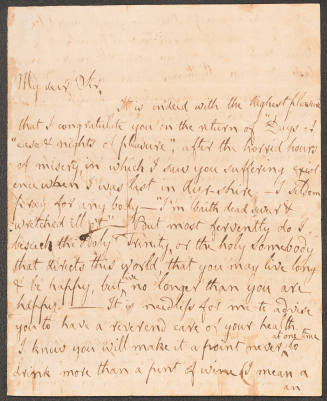 My dear Sir,
It is indeed with the highest pleasure
that I congratulate you on the return of "Days of
"ease & nights of pleasure", after the horrid hours
of misery, in which I saw you suffering exist
ence when I was last in Ayr-shire — I seldom
pray for any body — "I'm baith dead sweer &
wretched ill o't" — But most fervently do I
beseech the Holy Trinity, or the holy Somebody
that directs this world, that you may live long
& be happy, but no longer than you are
happy. — It is needless for me to advise
you to have a reverend care of your health.
I know you will make it a point never at one time to
drink more than a pint of wine (I mean a
an